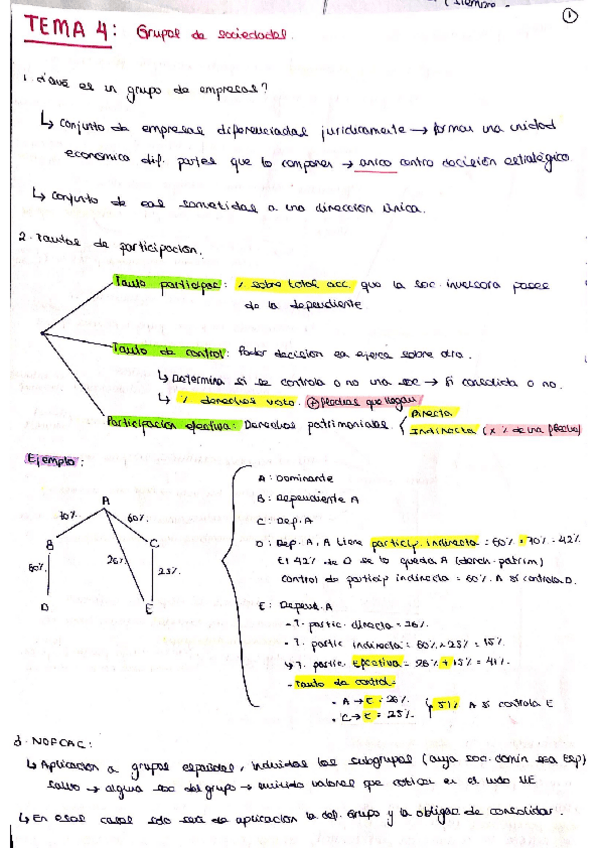 ( siempre -
1
TEMA 4: Grupal de sociedades.
1. ¿Qué es un grupo de empresas?
↳ Conjunto de empresas diferenciadas jurídicamente → forman una unidad
económica dif. partes que lo componen → único centro decisión estratégico
↳ Conjunto de eas sometidas a una dirección única.
2. Tantos de participación.
Tanto participac: % sobre total acc. que la soc. inversora posee
de la dependiente
Tanto de control: Poder decisión ea ejerce sobre otra.
↳ Determina si se controla o no una soc → si consolida o no.
↳ % derechos voto. ⊕ flechas que llegan
Participación efectiva: Derechos patrimoniales { Directa
Indirecta (x % de una flecha)
Ejemplo:
A
70%. 60%.
B C
26%
60%. 25%.
D E
A: Dominante
B: Dependiente A
C: Dep. A
D: Dep. A, A tiene particip. indirecta = 60% * 70% = 42%
El 42% de D se lo queda A (derech. patrim)
control de particip indirecta = 60%. A sí controla D.
E: Depend. A
- T. partic. directa = 26%.
- T. partic indirecta = 60% x 25% = 15%.
↳ T. partic. Efectiva = 26% + 15% = 41%.
- Tanto de control =
- A → E = 26%.
- C → E = 25%.
} 51% A sí controla E
3. NOFCAC:
↳ Aplicación a grupos españoles, incluidos los subgrupos (cuya soc. domin sea Esp)
salvo → alguna soc del grupo → emitido valores que coticen en el mdo UE
↳ En esos casos sólo será de aplicación la def. Grupo y la obligac de consolidar.